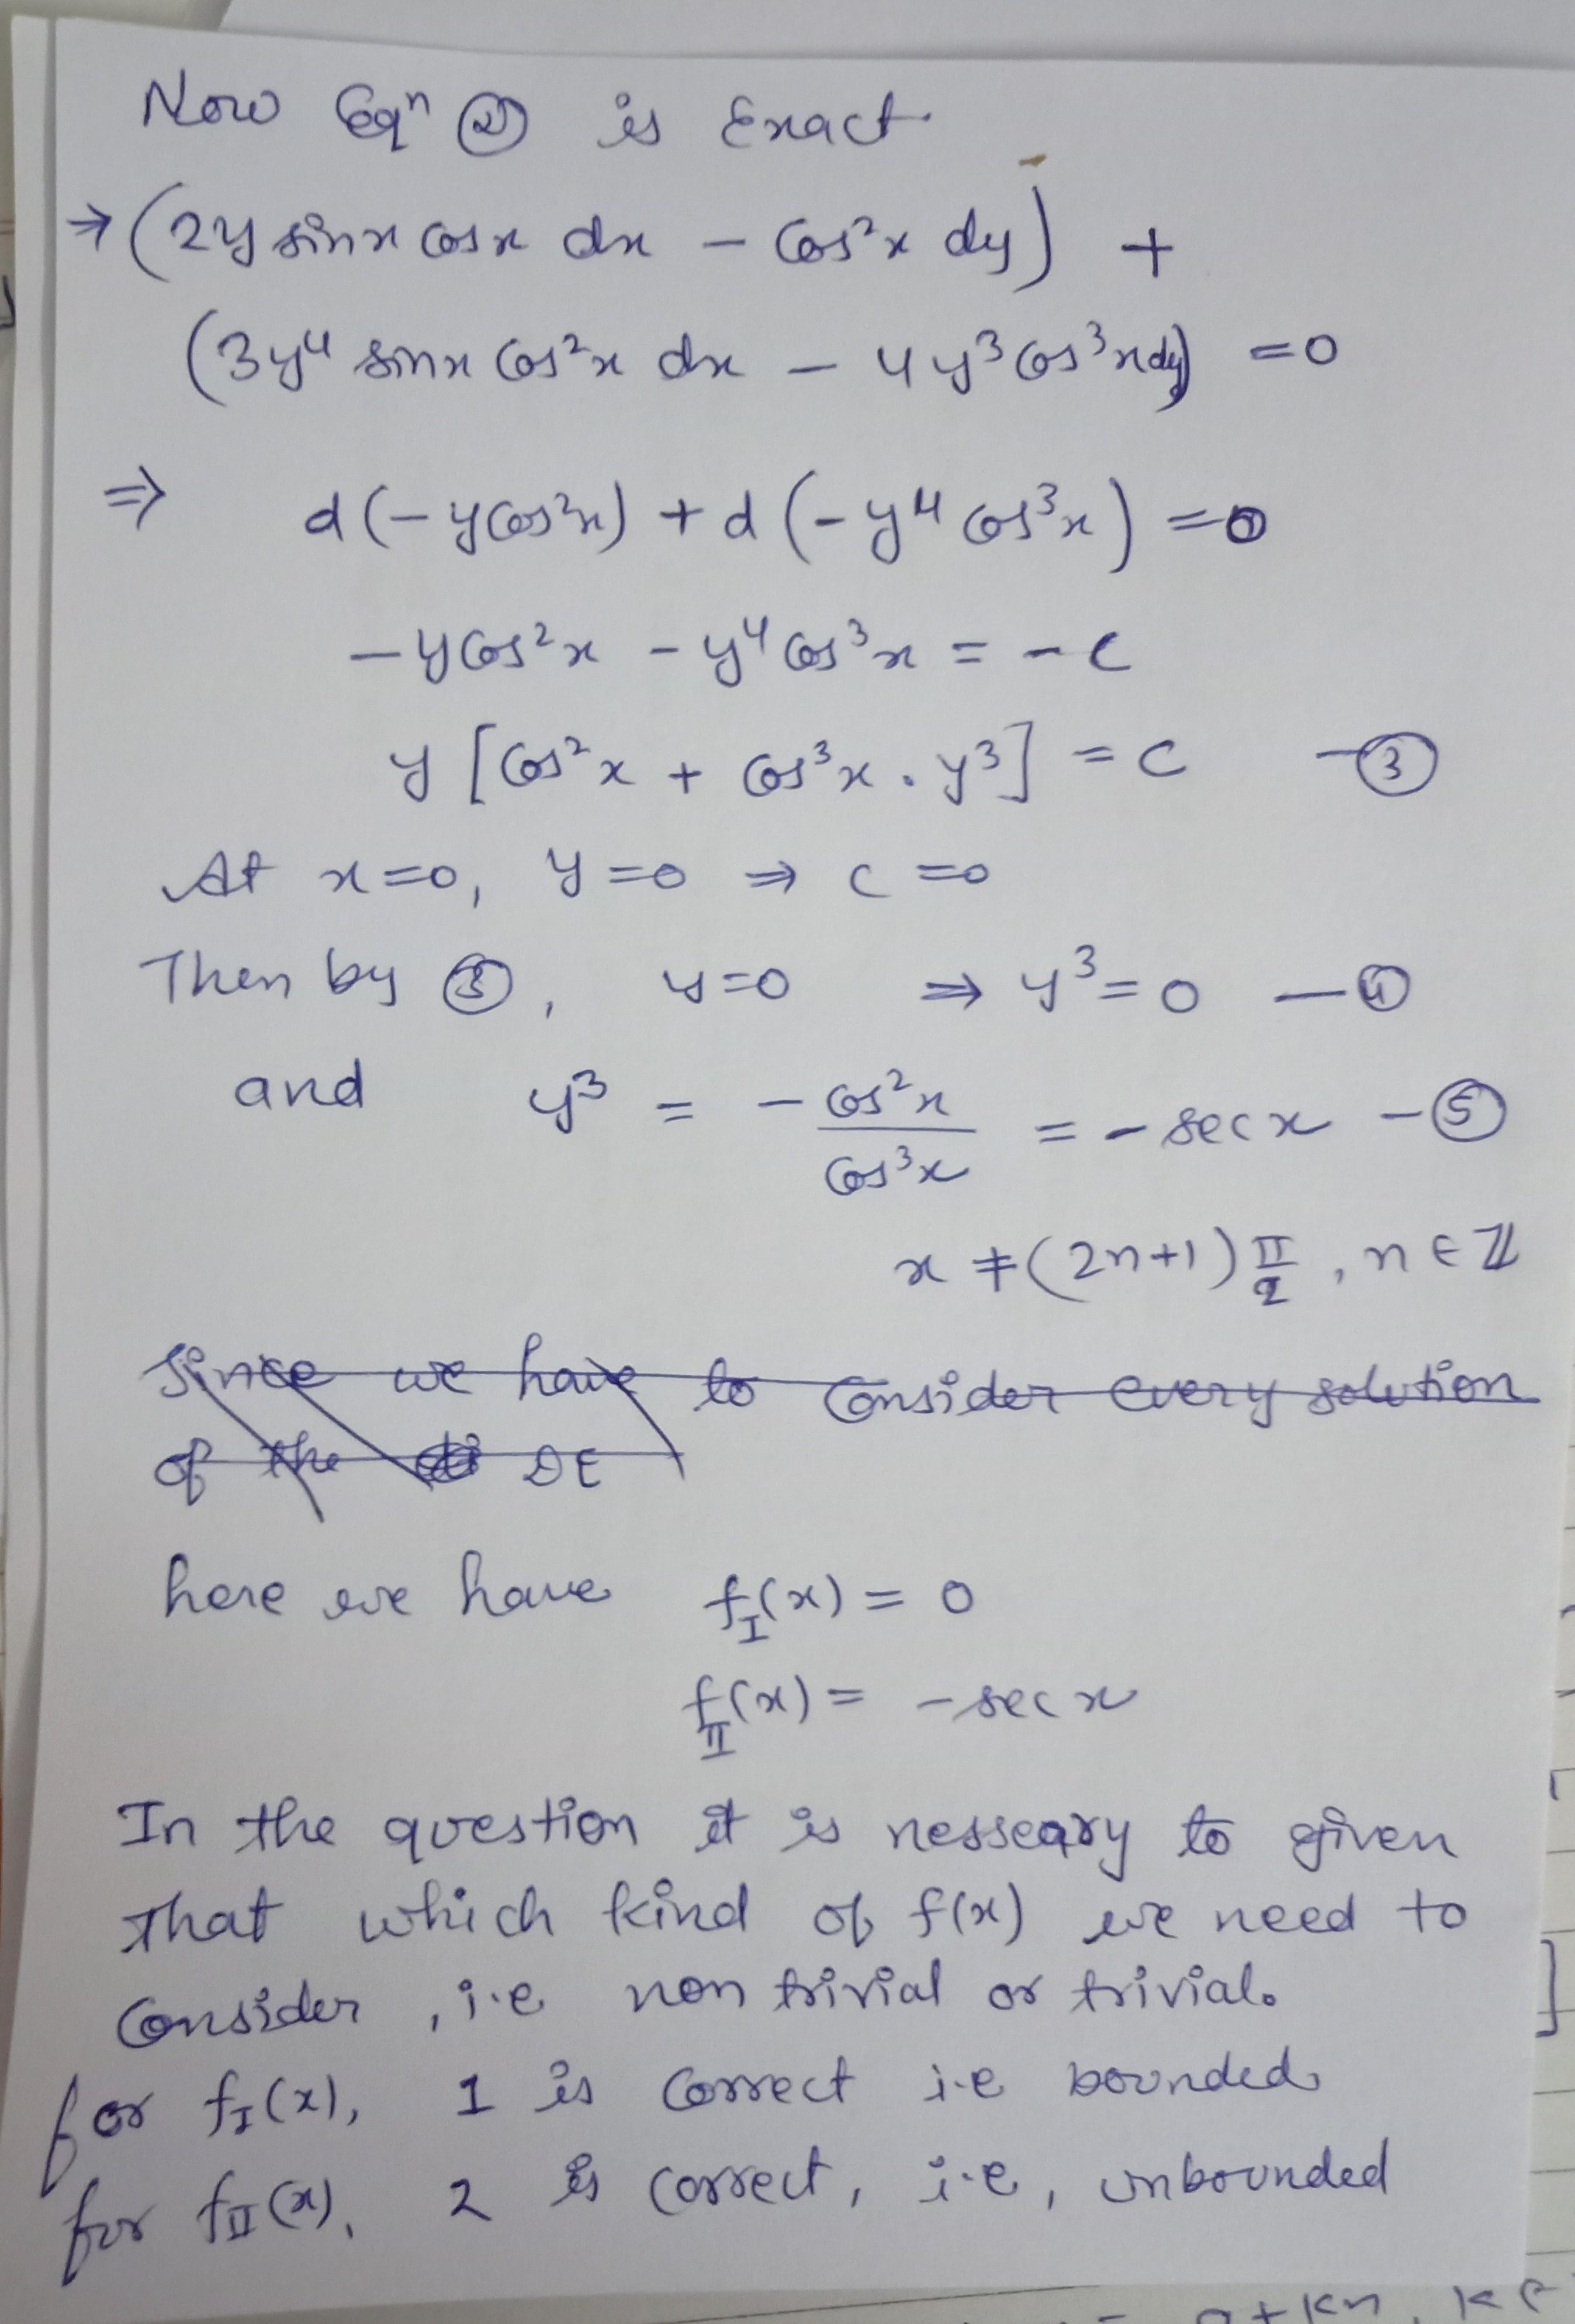 Now Eqⁿ ② is Exact
→ (2y sinx cosx dx - cos²x dy) +
(3y⁴ sinx cos²x dx - 4y³ cos³x dy) = 0
⇒ d(-y cos²x) + d(-y⁴ cos³x) = 0
-y cos²x - y⁴ cos³x = -c
y [cos²x + cos³x . y³] = c -③
At x=0, y=0 ⇒ c=0
Then by ③, y=0 ⇒ y³=0 -④
and y³ = -cos²x/cos³x = -sec x -⑤
x ≠ (2n+1) π/2, n ∈ ℤ
Since we have to consider every solution
of the DE
here we have f_I(x) = 0
f_II(x) = -sec x
In the question it is nesseary to given
that which kind of f(x) we need to
consider, i.e non trivial or trivial.
for f_I(x), 1 is correct i.e bounded
for f_II(x), 2 is correct, i.e, unbounded